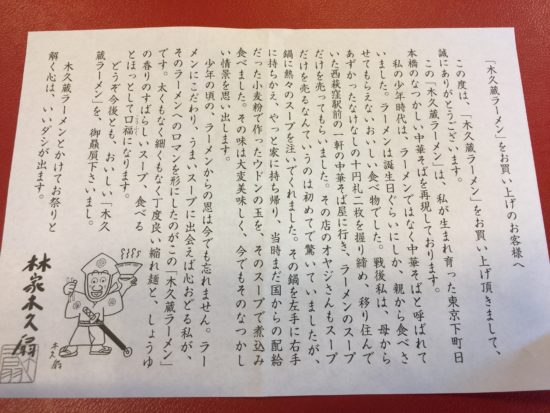 「木久蔵ラーメン」をお買い上げのお客様へ
この度は、「木久蔵ラーメン」をお買い上げ頂きまして、
誠にありがとうございます。
この「木久蔵ラーメン」は、私が生まれ育った東京下町日
本橋のなつかしい中華そばを再現しております。
私の少年時代は、ラーメンではなく中華そばと呼ばれて
いました。ラーメンは誕生日ぐらいにしか、親から食べさ
せてもらえないおいしい食べ物でした。戦後私は、母から
あずかったなけなしの十円札二枚を握り締め、移り住んで
いた西萩窪駅前の一軒の中華そば屋に行き、ラーメンのスープ
だけを売ってもらいました。その店のオヤジさんもスープ
だけを売るなんていうのは初めてで驚いていましたが、
鍋に熱々のスープを注いでくれました。その鍋を左手に右手
に持ちかえ、やっと家に持ち帰り、当時まだ国からの配給
だった小麦粉で作ったウドンの玉を、そのスープで煮込み
食べました。その味は大変美味しく、今でもそのなつかし
い情景を思い出します。
少年の頃の、ラーメンからの恩は今でも忘れません。ラー
メンにこだわり、うまいスープに出会えば心おどる私が、
そのラーメンへのロマンを形にしたのがこの「木久蔵ラーメン」
です。太くもなく細くもなく丁度良い縮れ麺と、しょうゆ
の香りのすばらしいスープ、食べる
とほっとして口福になります。
どうぞ今後とも、おいしい、「木久
蔵ラーメン」を、御贔屓下さいまし。
木久蔵ラーメンとかけてお祭りと
解く心は、いいダシが出ます。
林家木久扇
木久扇